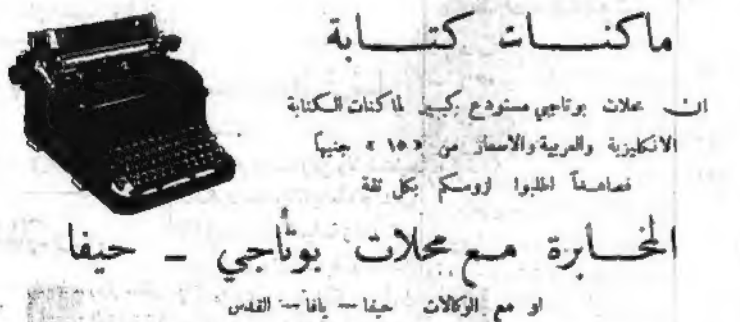 ماكنات كتابة
ان محلات بوتاجي مستودع كبير لماكنات الكتابة
الانكليزية والعربية والاسعار من «١٥» جنيهاً
فصاعداً اطلبوا بكل ثقة
المخابرة مع محلات بوتاجي – حيفا
او مع الوكالات حيفا – يافا – القدس